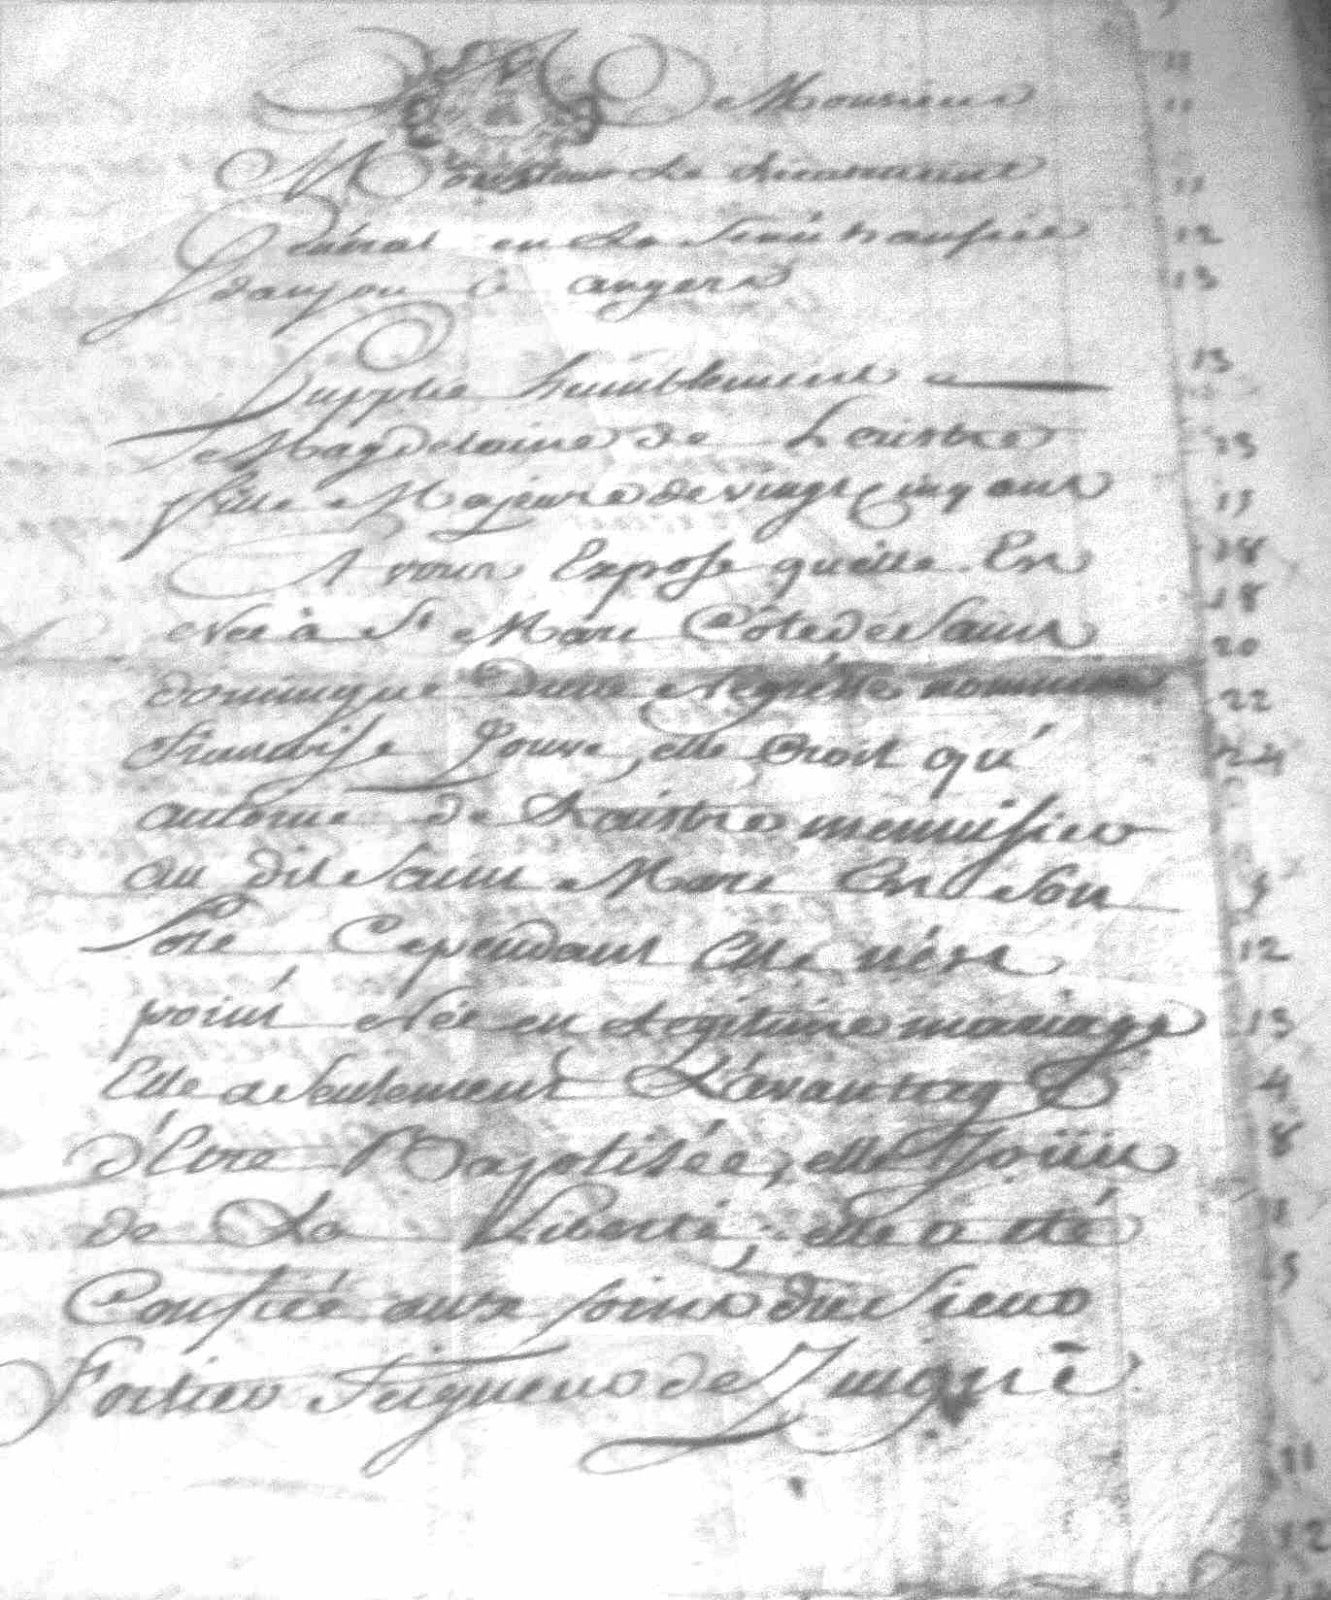 A Monsieur
Monsieur Le Lieutenant
Général en La Sénéchaussée
danjou à angers
Supplie humblement
Magdelaine de Laistre
fille Majeure de vingt cinq ans
Et vous Expose quelle Est
Née à St Marc Côte de Saint
domingue Dune Négresse nommée
francoise Jouve, elle Croit qu'
antoine de Laistre menuisier
au dit Saint Marc Est Son
Pere Cependant Elle n'est
point Née en Légitime mariage
Elle a Seulement L'avantage
d'Etre Baptisée, elle Joüit
de La Liberté, elle a été
Confiée aux soins du Sieur
Fortier Seigneur de Juigné
11
11
11
12
13
13
15
15
18
18
20
22
24
12
13
4
8
5
11
12